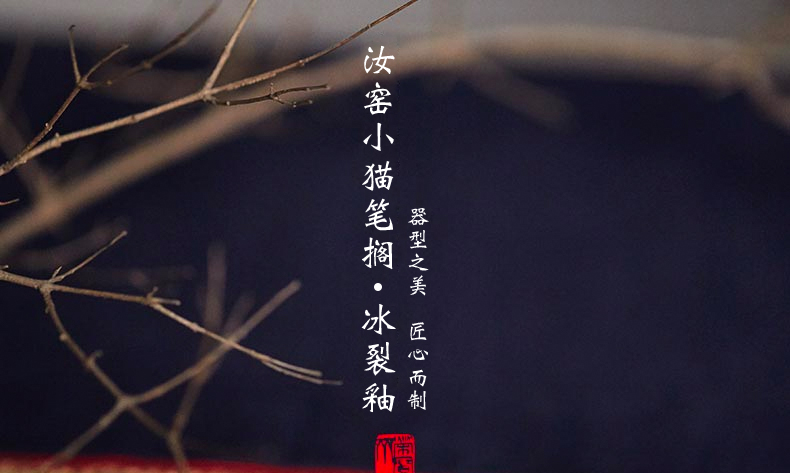 汝窑小猫笔搁·冰裂釉
器型之美 匠心而制